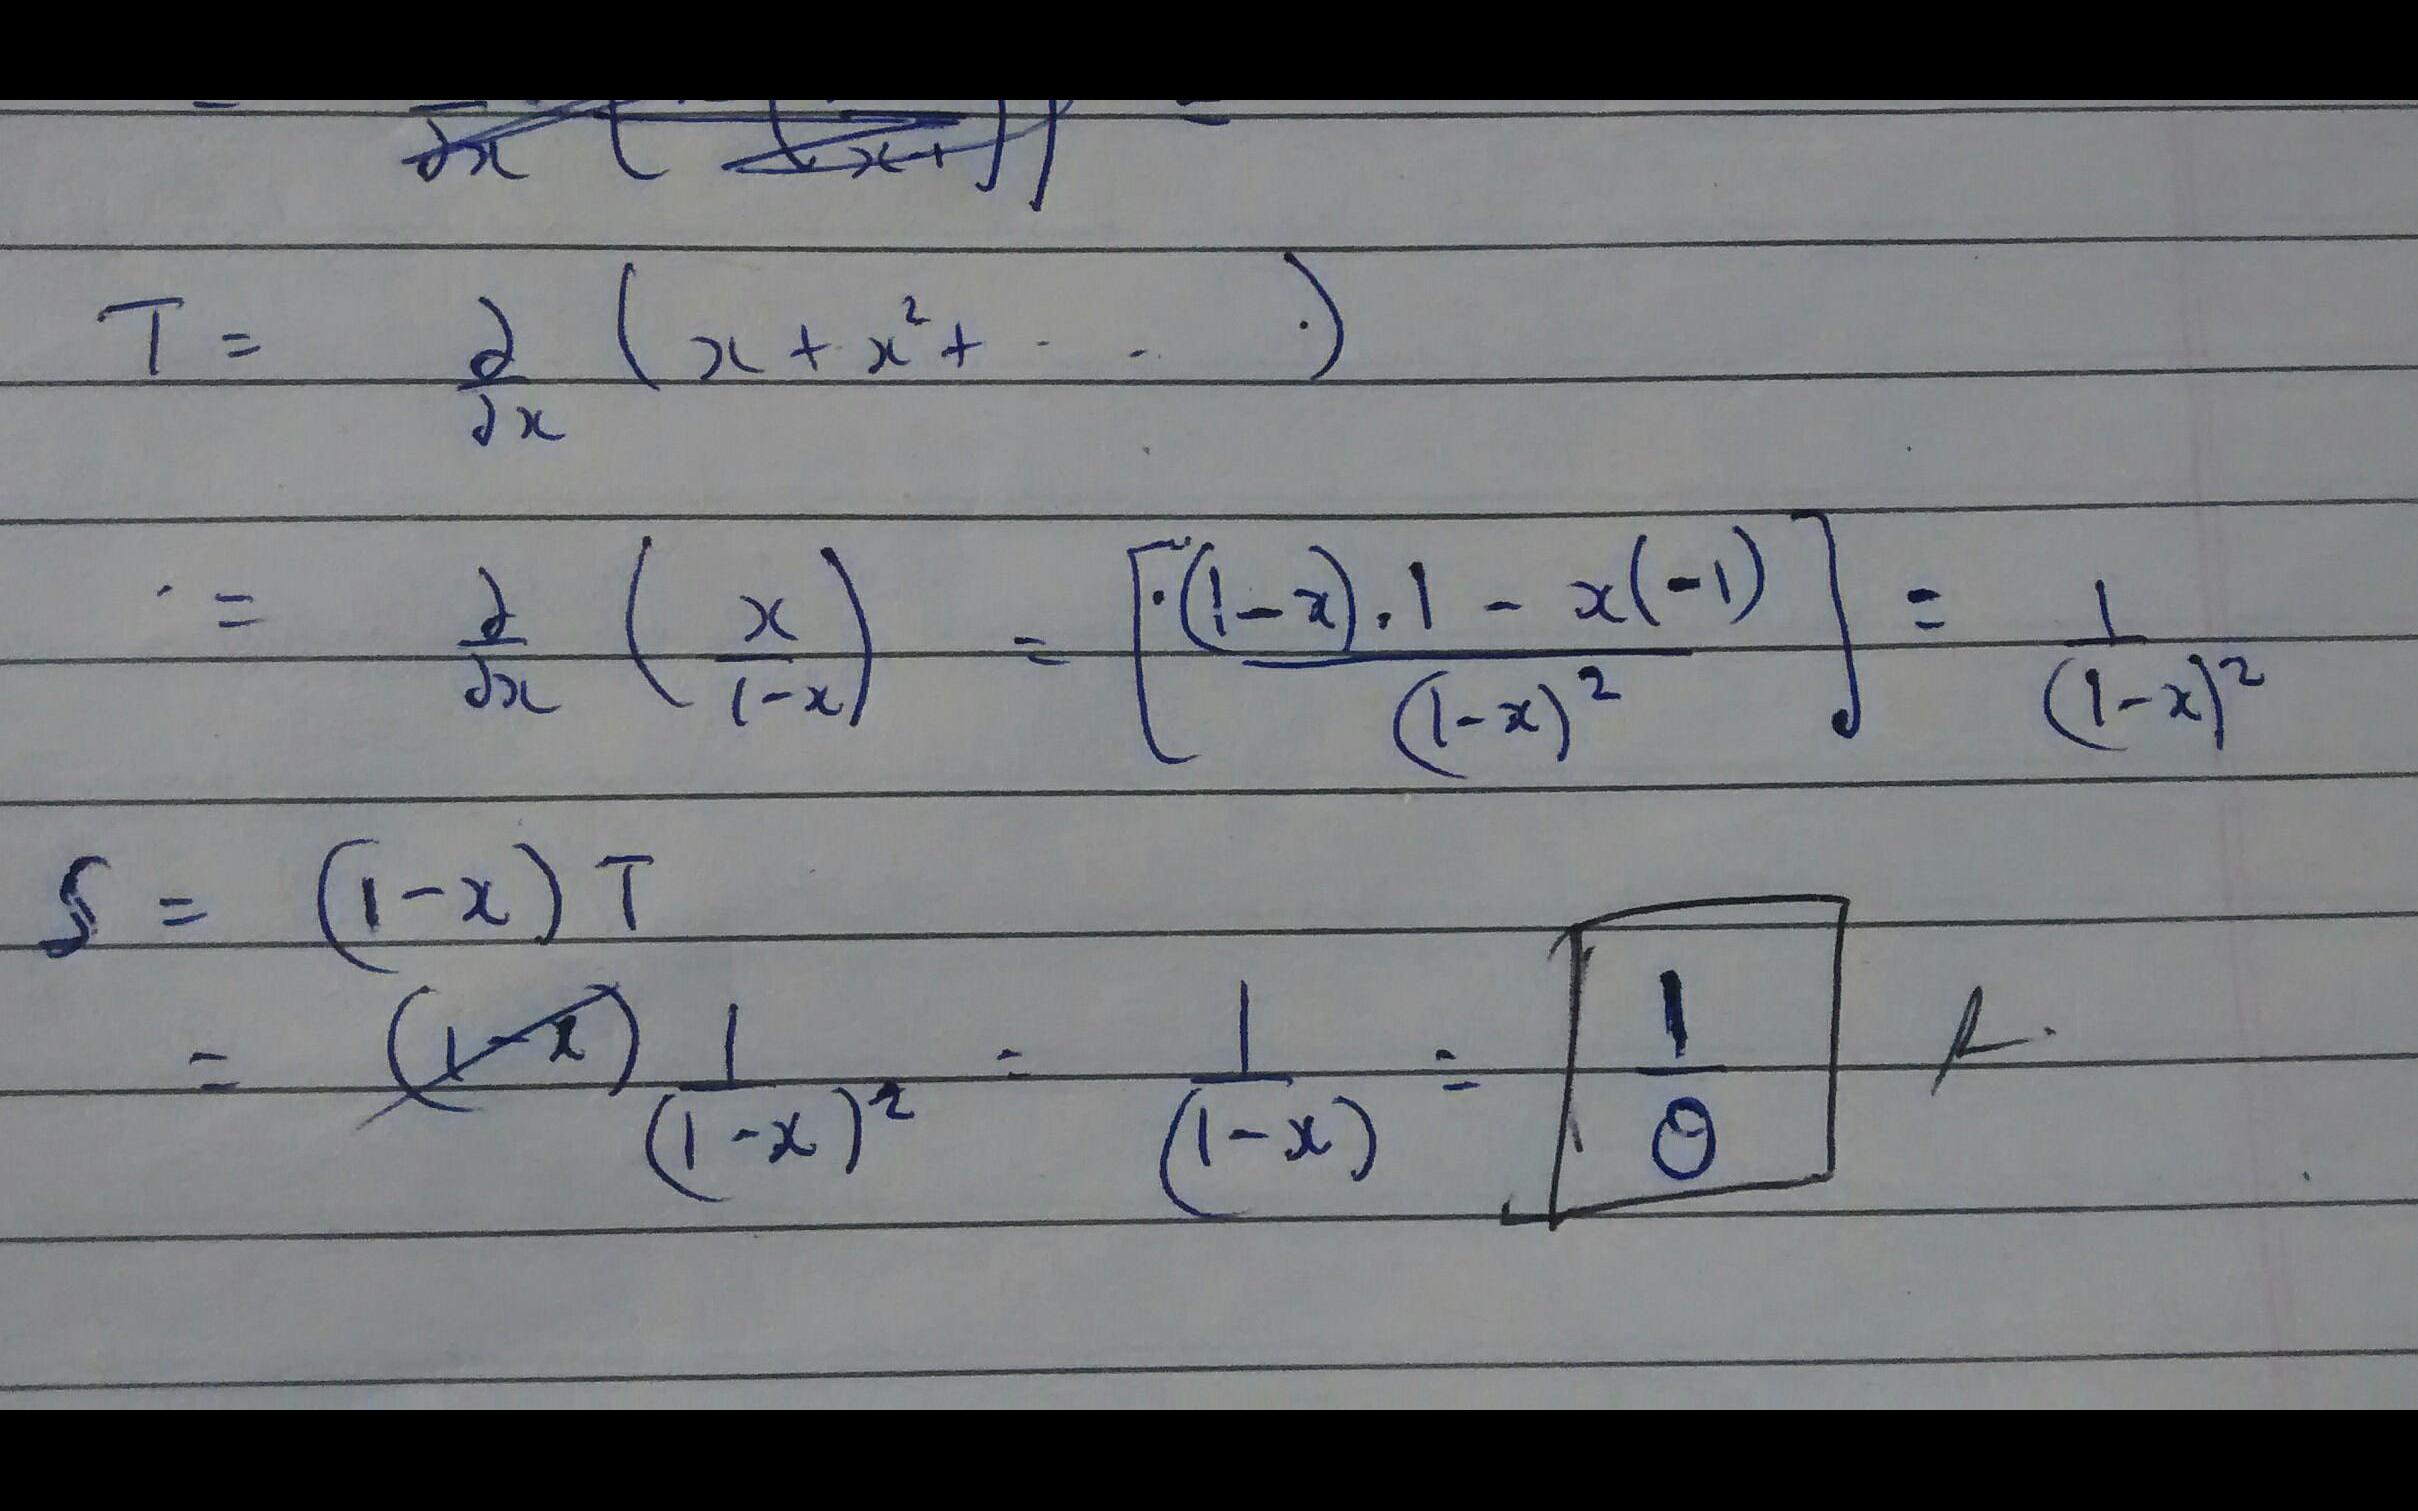 ∂/∂x ( ( x+ ) ) =
T = ∂/∂x (x + x² + . . . )
= ∂/∂x (x/(1-x)) = [((1-x).1 - x(-1))/(1-x)²] = 1/(1-x)²
S = (1-x) T
= (1-x) 1/(1-x)² = 1/(1-x) = 1/θ